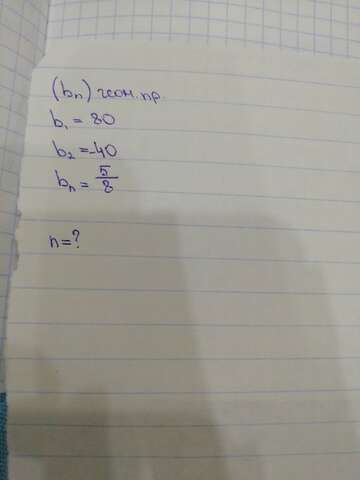 (bₙ) геом. пр.
b₁ = 80
b₂ = -40
bₙ = 5/8
n = ?